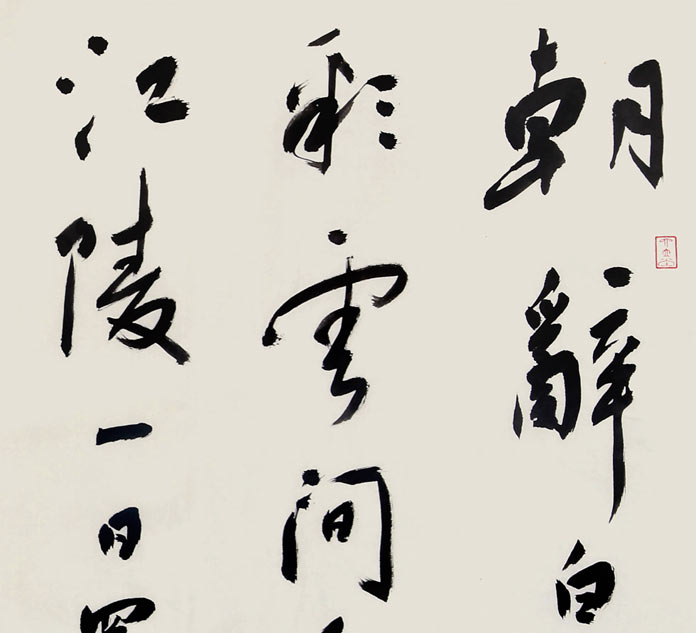 朝辭白
彩雲間
江陵一日